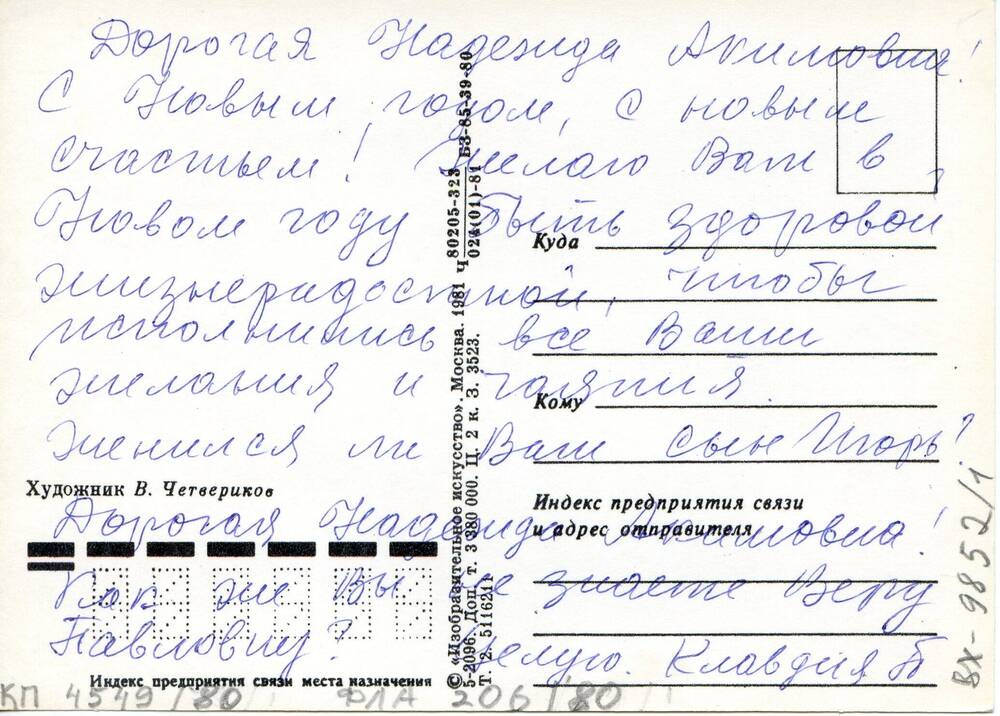 Дорогая Надежда Акимовна!
С Новым годом, с новым
счастьем! Желаю Вам в
Новом году быть здоровой,
жизнерадостной, чтобы
исполнились все Ваши
желания и чаяния.
Женился ли Ваш сын Игорь?
Дорогая Надежда Акимовна!
Как же Вы не знаете Веру
Павловну? Целую. Клавдия Б
Куда
Кому
Индекс предприятия связи
и адрес отправителя
Художник В. Четвериков
Индекс предприятия связи места назначения
© «Изобразительное искусство». Москва. 1981 Ч 80205-323 БЗ-85-39-80
024(01)-81
5-2096. Доп. т. 3 380 000. Ц. 2 к. З. 3523.
Т. 2. 511621
КП 4549/80 ФЛА 206/80
ВХ-9852/1